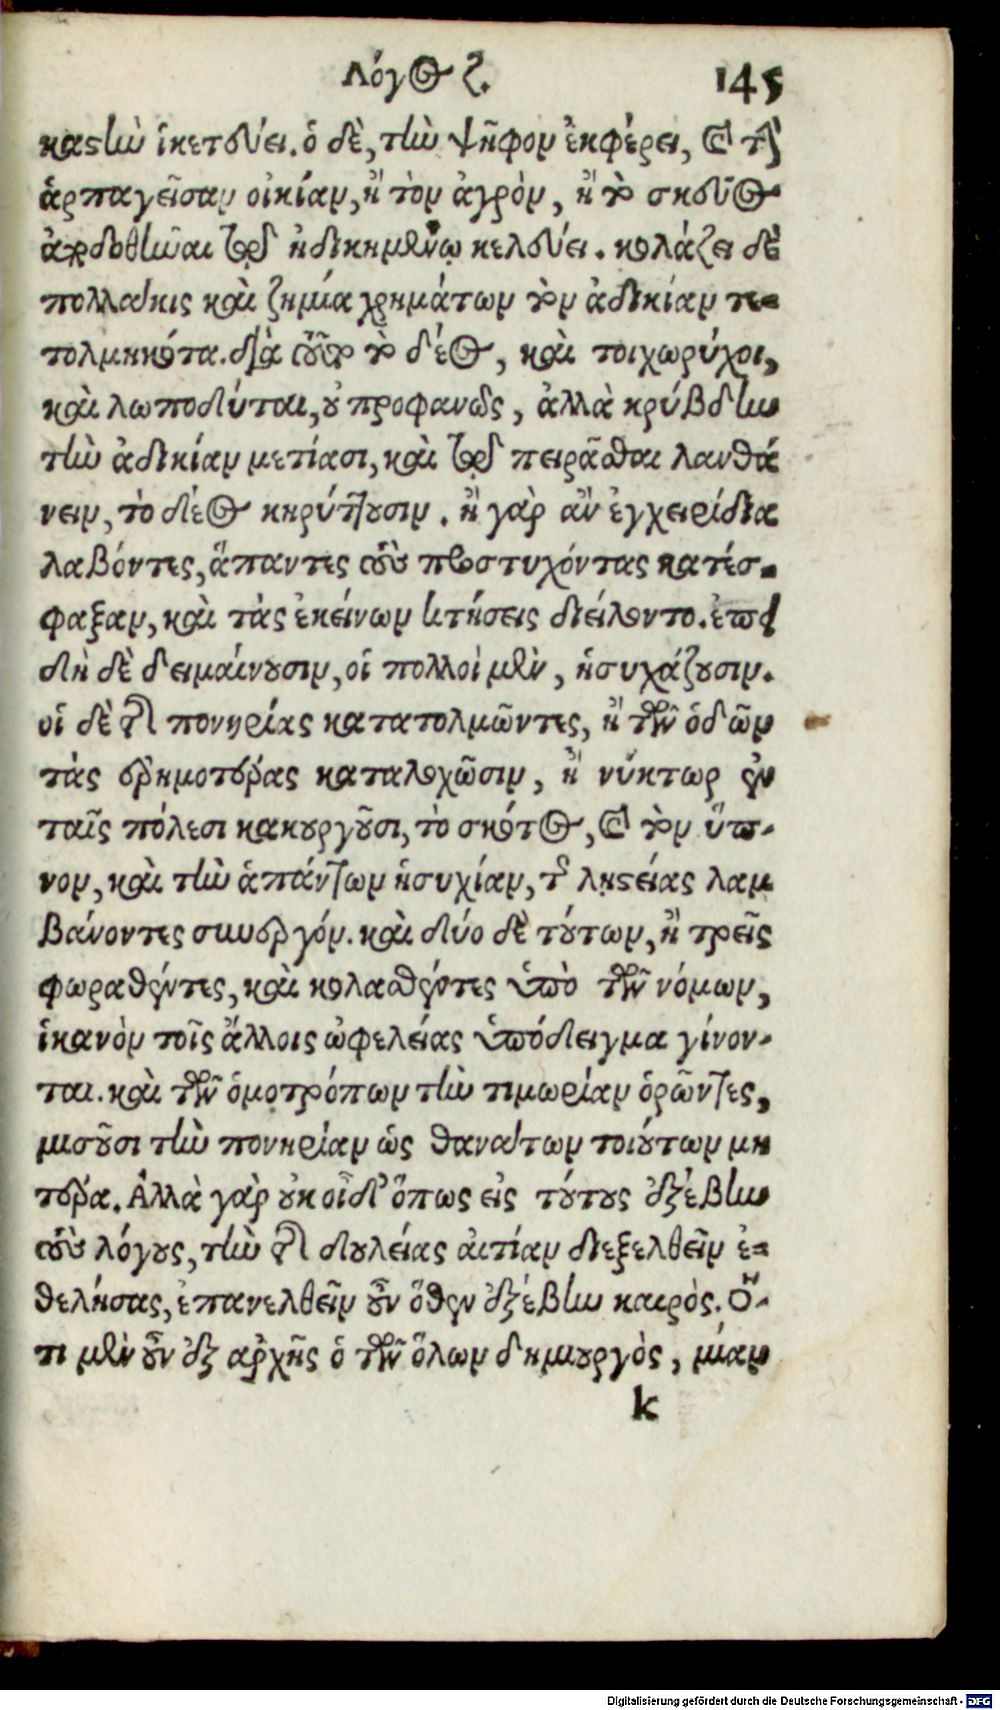 Λόγος ζ. 145
καστὴν ἱκετεύει. ὁ δὲ, τὴν ψῆφον ἐκφέρει, καὶ τὴν
ἁρπαγεῖσαν οἰκίαν, ἢ τὸν ἀγρὸν, ἢ τὸ σκεῦος
ἀποδοθῆναι τῷ ἠδικημένῳ κελεύει. κολάζει δὲ
πολλάκις καὶ ζημίᾳ χρημάτων τὸν ἀδικίαν τε-
τολμηκότα. διὰ τοῦτο τὸ δέος, καὶ τοιχωρύχοι,
καὶ λωποδύται, οὐ προφανῶς, ἀλλὰ κρύβδην
τὴν ἀδικίαν μετίασι, καὶ τῷ πειρᾶσθαι λανθά
νειν, τὸ δέος κηρύττουσιν. ἢ γὰρ ἂν ἐγχειρίδια
λαβόντες, ἅπαντες τοὺς προστυχόντας κατέσ-
φαξαν, καὶ τὰς ἐκείνων κτήσεις διείλοντο. ἐπει
δὴ δὲ δειμαίνουσιν, οἱ πολλοὶ μὲν, ἡσυχάζουσιν.
οἱ δὲ τῆς πονηρίας κατατολμῶντες, ἢ τῶν ὁδῶν
τὰς ἐρημοτέρας καταλοχῶσιν, ἢ νύκτωρ ἐν
ταῖς πόλεσι κακουργοῦσι, τὸ σκότος, καὶ τὸν ὕπ-
νον, καὶ τὴν ἁπάντων ἡσυχίαν, τῆς λῃστείας λαμ
βάνοντες συνεργόν. καὶ δύο δὲ τούτων, ἢ τρεῖς
φωραθέντες, καὶ κολασθέντες ὑπὸ τῶν νόμων,
ἱκανὸν τοῖς ἄλλοις ὠφελείας ὑπόδειγμα γίνον-
ται. καὶ τῶν ὁμοτρόπων τὴν τιμωρίαν ὁρῶντες,
μισοῦσι τὴν πονηρίαν ὡς θανάτων τοιούτων μη
τέρα. Ἀλλὰ γὰρ οὐκ οἶδ' ὅπως εἰς τούτους ἐξέβην
τοὺς λόγους, τὴν τῆς δουλείας αἰτίαν διεξελθεῖν ἐ-
θελήσας, ἐπανελθεῖν οὖν ὅθεν ἐξέβην καιρὸς. Ὅ-
τι μὲν οὖν ἐξ ἀρχῆς ὁ τῶν ὅλων δημιουργὸς, μίαν
k
Digitalisierung gefördert durch die Deutsche Forschungsgemeinschaft - DFG